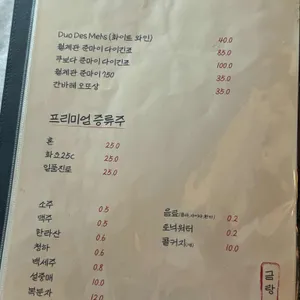 Duo Des Mehs (화이트 와인) 40.0
월계관 준마이 다이긴죠 35.0
쿠보다 준마이 다이긴죠 100.0
월계관 준마이 750 35.0
간바레 오또상 35.0
프리미엄 증류주
혼 25.0
화요25c 25.0
일품진로 25.0
소주 0.5
맥주 0.5
한라산 0.6
청하 0.6
백세주 0.8
설중매 10.0
복분자 12.0
음료 0.2
토닉워터 0.2
콜키지 10.0